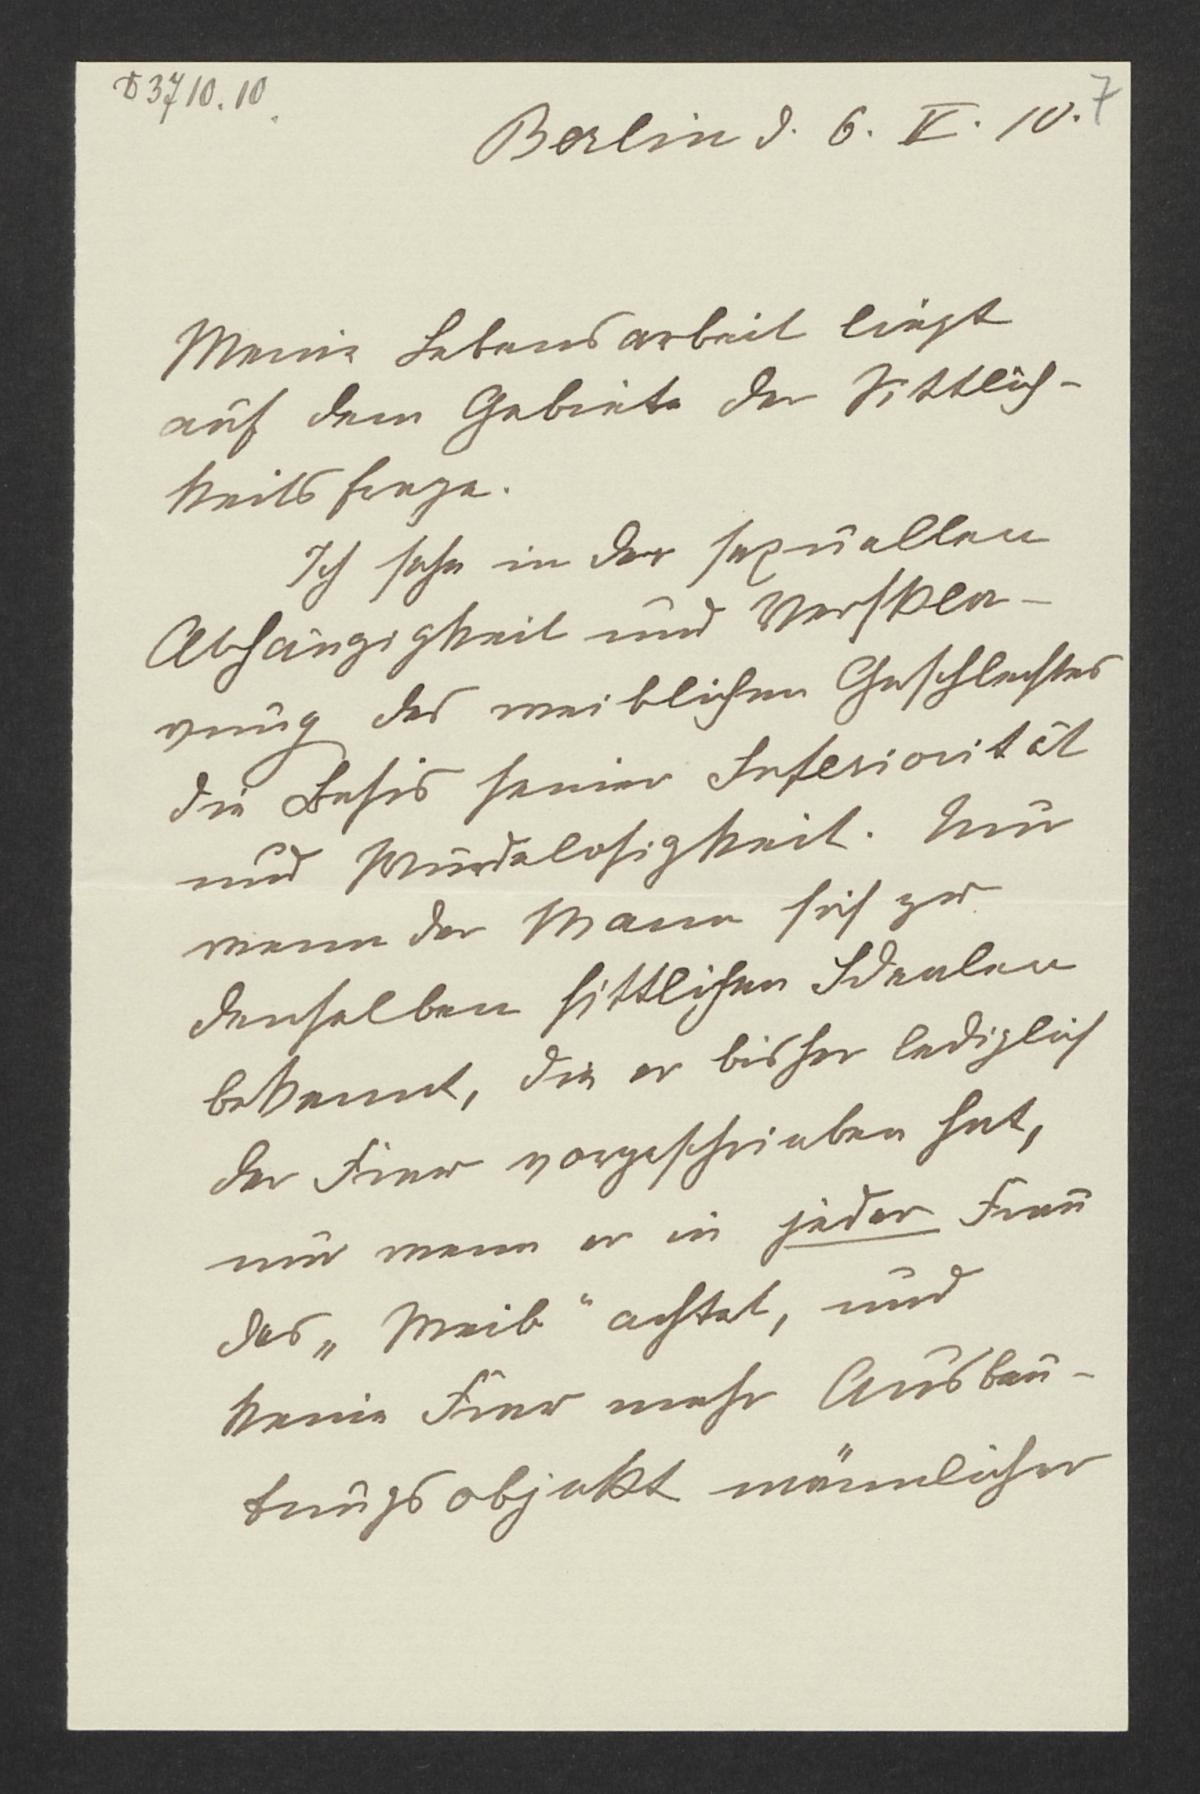 Đ 3710.10
7
Berlin d. 6. V. 10.
Meine Lebensarbeit liegt
auf dem Gebiete der Sittlich-
keitsfrage.
Ich sehe in der sexuellen
Abhängigkeit und Verskla-
vung des weiblichen Geschlechtes
die Basis seiner Inferiorität
und Würdelosigkeit. Nur
wenn der Mann sich zu
denselben sittlichen Idealen
bekennt, die er bisher lediglich
der Frau vorgeschrieben hat,
nur wenn er in jeder Frau
das „Weib“ achtet, und
keine Frau mehr Ausbeu-
tungsobjekt männlicher